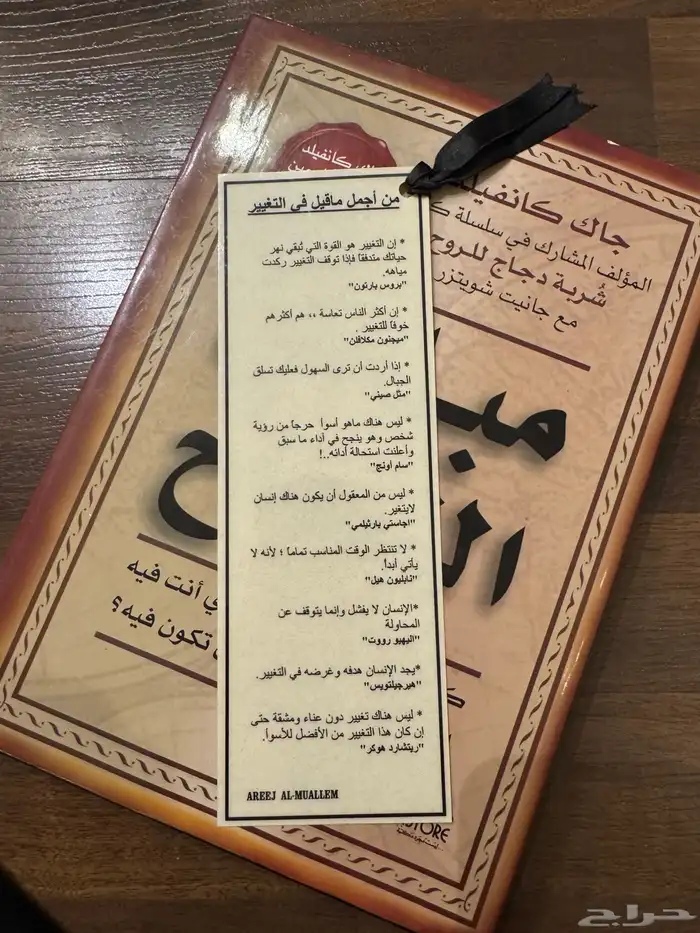 من أجمل ماقيل في التغيير
* إن التغيير هو القوة التي تُبقي نهر
حياتك متدفقاً فإذا توقف التغيير ركدت
مياهه.
"بروس بارتون"
* إن أكثر الناس تعاسة ،، هم أكثرهم
خوفاً للتغيير .
"ميجنون مكلافلن"
* إذا أردت أن ترى السهول فعليك تسلق
الجبال.
"مثل صيني"
* ليس هناك ماهو أسوأ حرجاً من رؤية
شخص وهو ينجح في أداء ما سبق
وأعلنت استحالة أدائه..!
"سام اونج"
* ليس من المعقول أن يكون هناك إنسان
لايتغير.
"اجاستي بارثيلمي"
* لا تنتظر الوقت المناسب تماماً ؛ لأنه لا
يأتي أبداً.
"نابليون هيل"
*الإنسان لا يفشل وإنما يتوقف عن
المحاولة
"اليهيو رووت"
*يجد الإنسان هدفه وغرضه في التغيير.
"هيرجيليتوس"
* ليس هناك تغيير دون عناء ومشقة حتى
إن كان هذا التغيير من الأفضل للأسوأ.
"ريتشارد هوكر"
AREEJ AL-MUALLEM
جاك كانفيلد
جاك كانفيلد
المؤلف المشارك في سلسلة
شُربة دجاج للروح
مع جانيت شويتزر
أنت فيه
تكون فيه؟
STORE
حراج